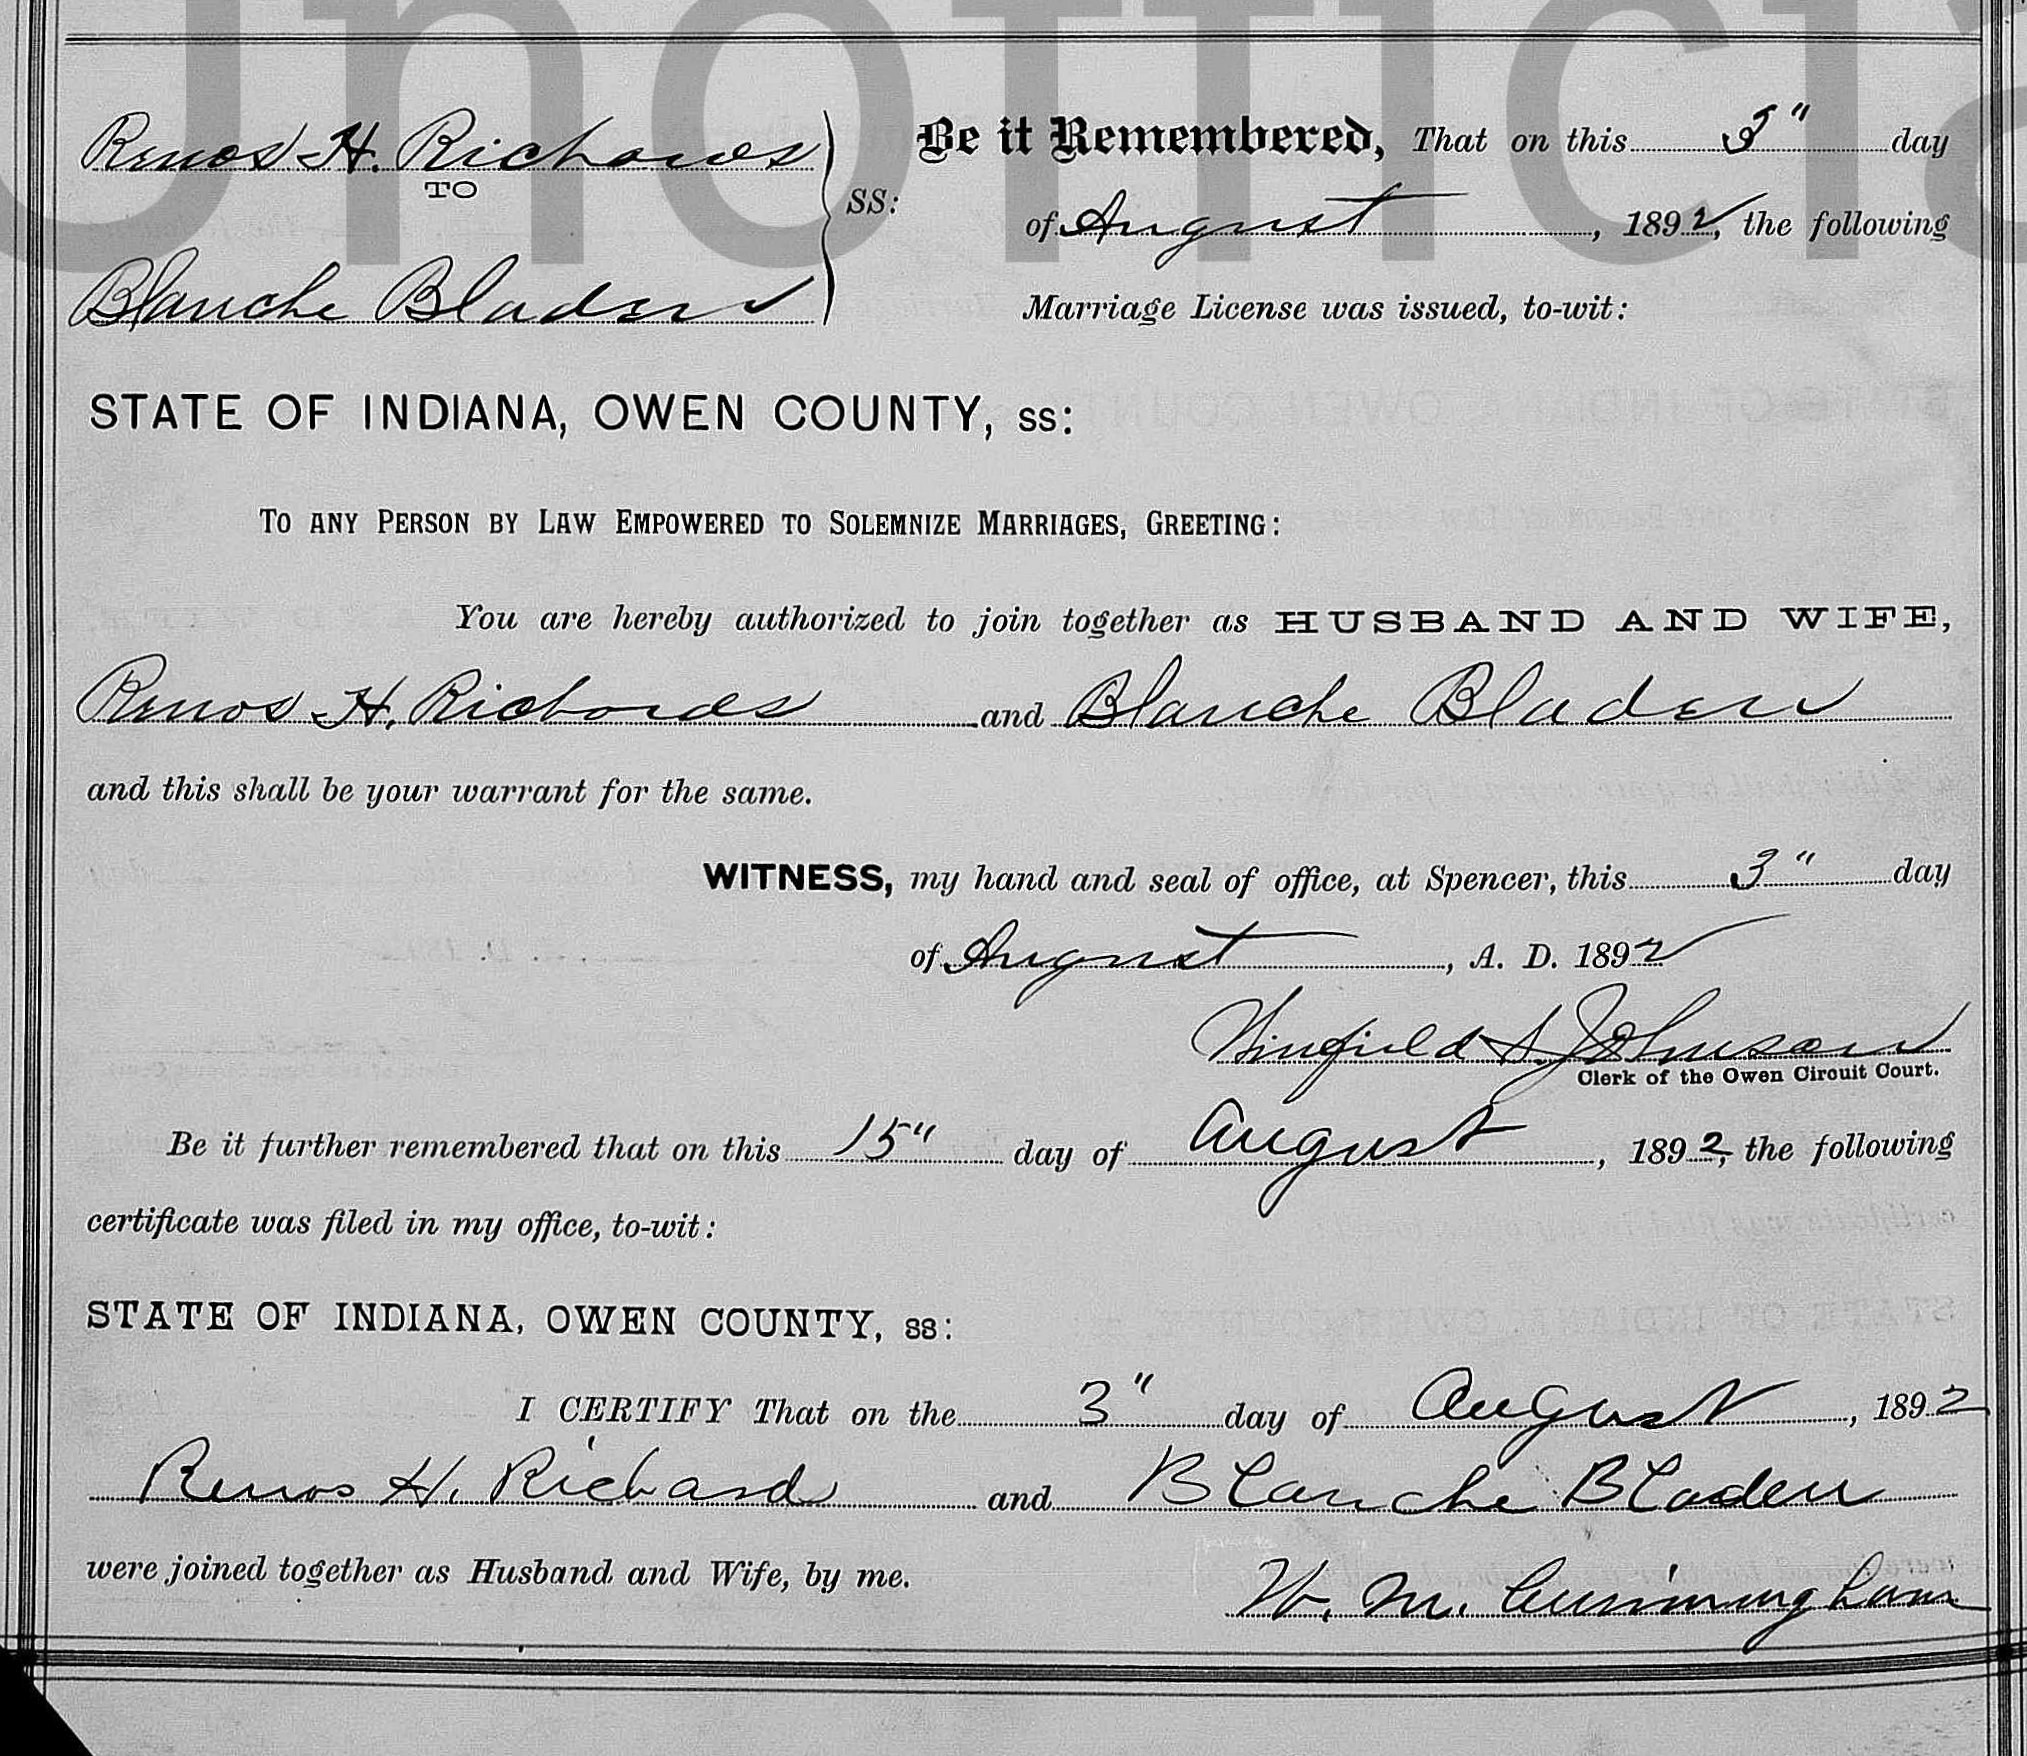 Unofficia
Renos H. Richards
TO
Blanche Bladen
SS:
Be it Remembered, That on this 3" day
of August, 1892, the following
Marriage License was issued, to-wit:
STATE OF INDIANA, OWEN COUNTY, SS:
TO ANY PERSON BY LAW EMPOWERED TO SOLEMNIZE MARRIAGES, GREETING:
You are hereby authorized to join together as HUSBAND AND WIFE,
Renos H. Richards and Blanche Bladen
and this shall be your warrant for the same.
WITNESS, my hand and seal of office, at Spencer, this 3" day
of August, A. D. 1892
Winfield S. Johnson
Clerk of the Owen Circuit Court.
Be it further remembered that on this 15" day of August, 1892, the following
certificate was filed in my office, to-wit:
STATE OF INDIANA, OWEN COUNTY, ss:
I CERTIFY That on the 3" day of August, 1892
Renos H. Richard and Blanche Bladen
were joined together as Husband and Wife, by me.
W. M. Cunningham